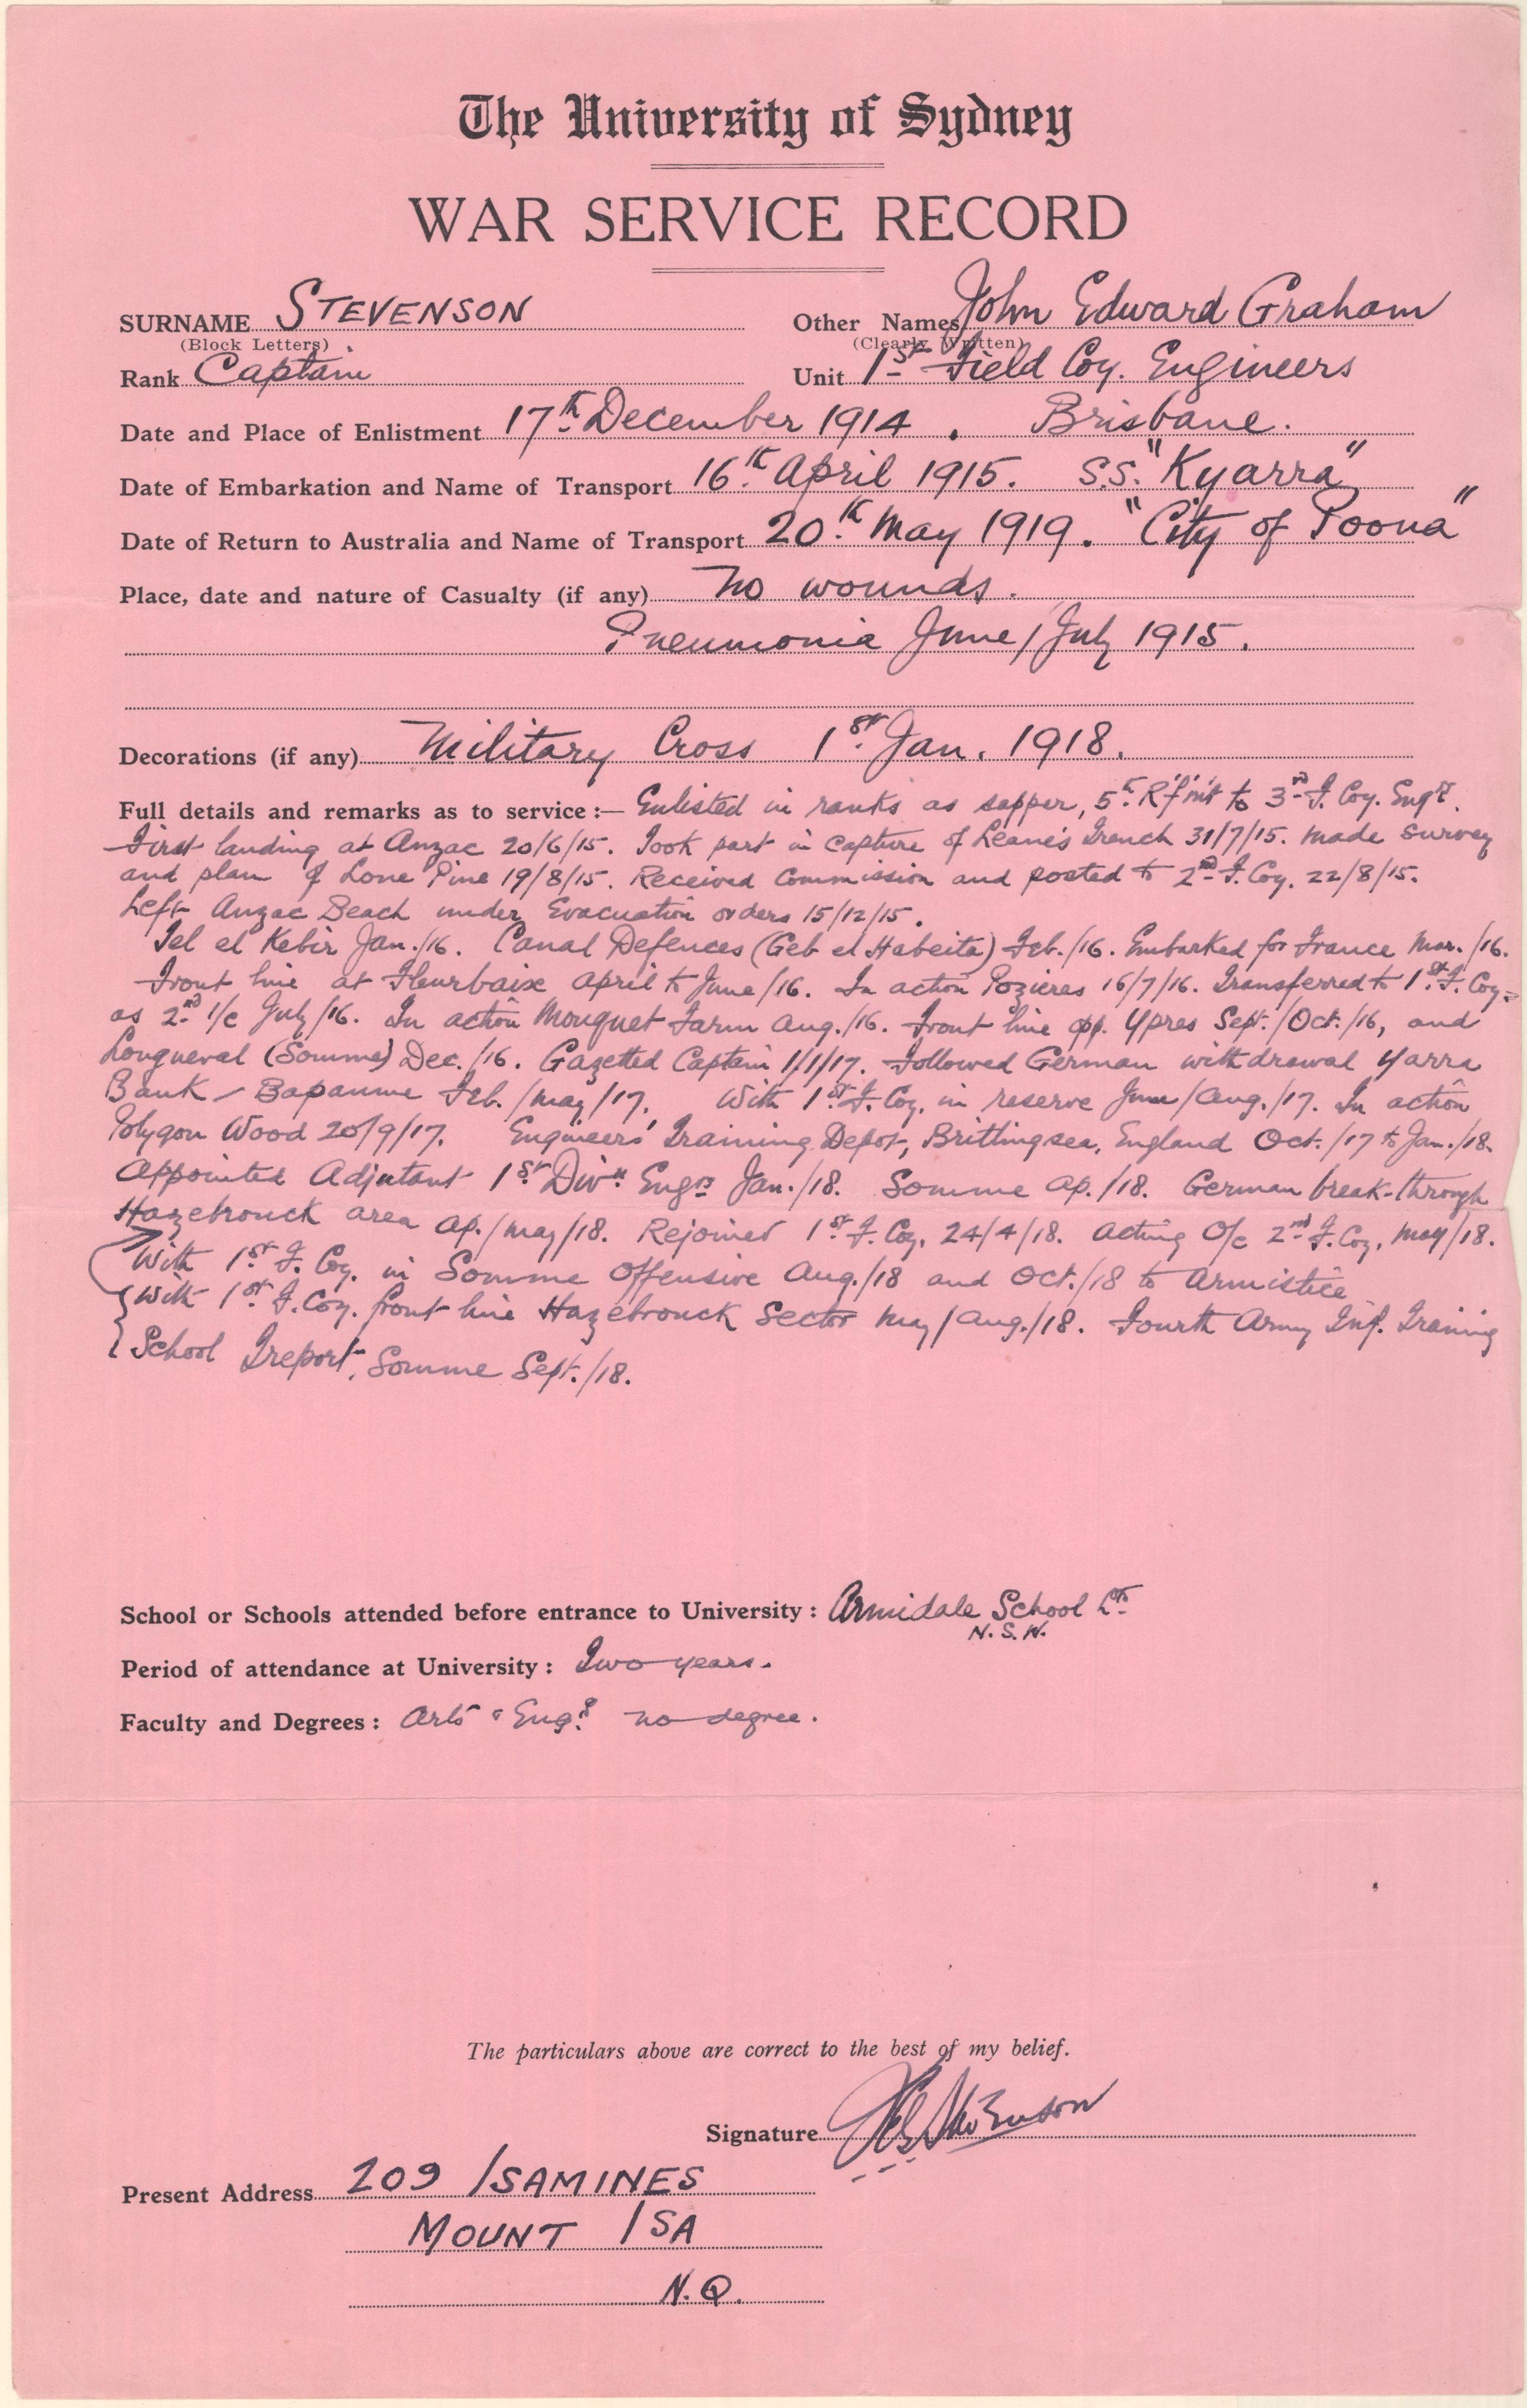 The University of Sydney
WAR SERVICE RECORD
SURNAME STEVENSON Other Names John Edward Graham
(Block Letters) (Clearly Written)
Rank Captain Unit 1st Field Coy. Engineers
Date and Place of Enlistment 17th December 1914. Brisbane.
Date of Embarkation and Name of Transport 16th April 1915. S.S. "Kyarra"
Date of Return to Australia and Name of Transport 20th May 1919. "City of Poona"
Place, date and nature of Casualty (if any) No wounds.
Pneumonia June/July 1915.
Decorations (if any) Military Cross 1st Jan. 1918.
Full details and remarks as to service:— Enlisted in ranks as sapper, 5th R'f'm't to 3rd F. Coy. Engrs.
First landing at Anzac 20/6/15. Took part in capture of Leane's Trench 31/7/15. Made survey
and plan of Lone Pine 19/8/15. Received Commission and posted to 2nd F. Coy. 22/8/15.
Left Anzac Beach under Evacuation orders 15/12/15.
Tel el Kebir Jan./16. Canal Defences (Geb el Habeita) Feb./16. Embarked for France Mar./16.
Front line at Fleurbaix April to June/16. In action Pozieres 16/7/16. Transferred to 1st F. Coy.
as 2nd i/c July/16. In action Mouquet Farm Aug./16. Front line opp. Ypres Sept./Oct./16, and
Longueval (Somme) Dec./16. Gazetted Captain 1/1/17. Followed German withdrawal Yarra
Bank - Bapaume Feb./May/17. With 1st F. Coy. in reserve June/Aug./17. In action
Polygon Wood 20/9/17. Engineers' Training Depot, Brittlingsea, England Oct./17 to Jan./18.
Appointed Adjutant 1st Divn Engrs Jan./18. Somme Ap./18. German break-through
Hazebrouck area Ap./May/18. Rejoined 1st F. Coy. 24/4/18. Acting O/c 2nd F. Coy. May/18.
With 1st F. Coy. in Somme Offensive Aug./18 and Oct./18 to Armistice
With 1st F. Coy. front line Hazebrouck Sector May/Aug./18. Fourth Army Inf. Training
School Treport, Somme Sept./18.
School or Schools attended before entrance to University: Armidale School
N.S.W.
Period of attendance at University: Two years.
Faculty and Degrees: Arts & Eng. no degree.
The particulars above are correct to the best of my belief.
Signature JEGStevenson
Present Address 209 ISAMINES
MOUNT ISA
N.Q.